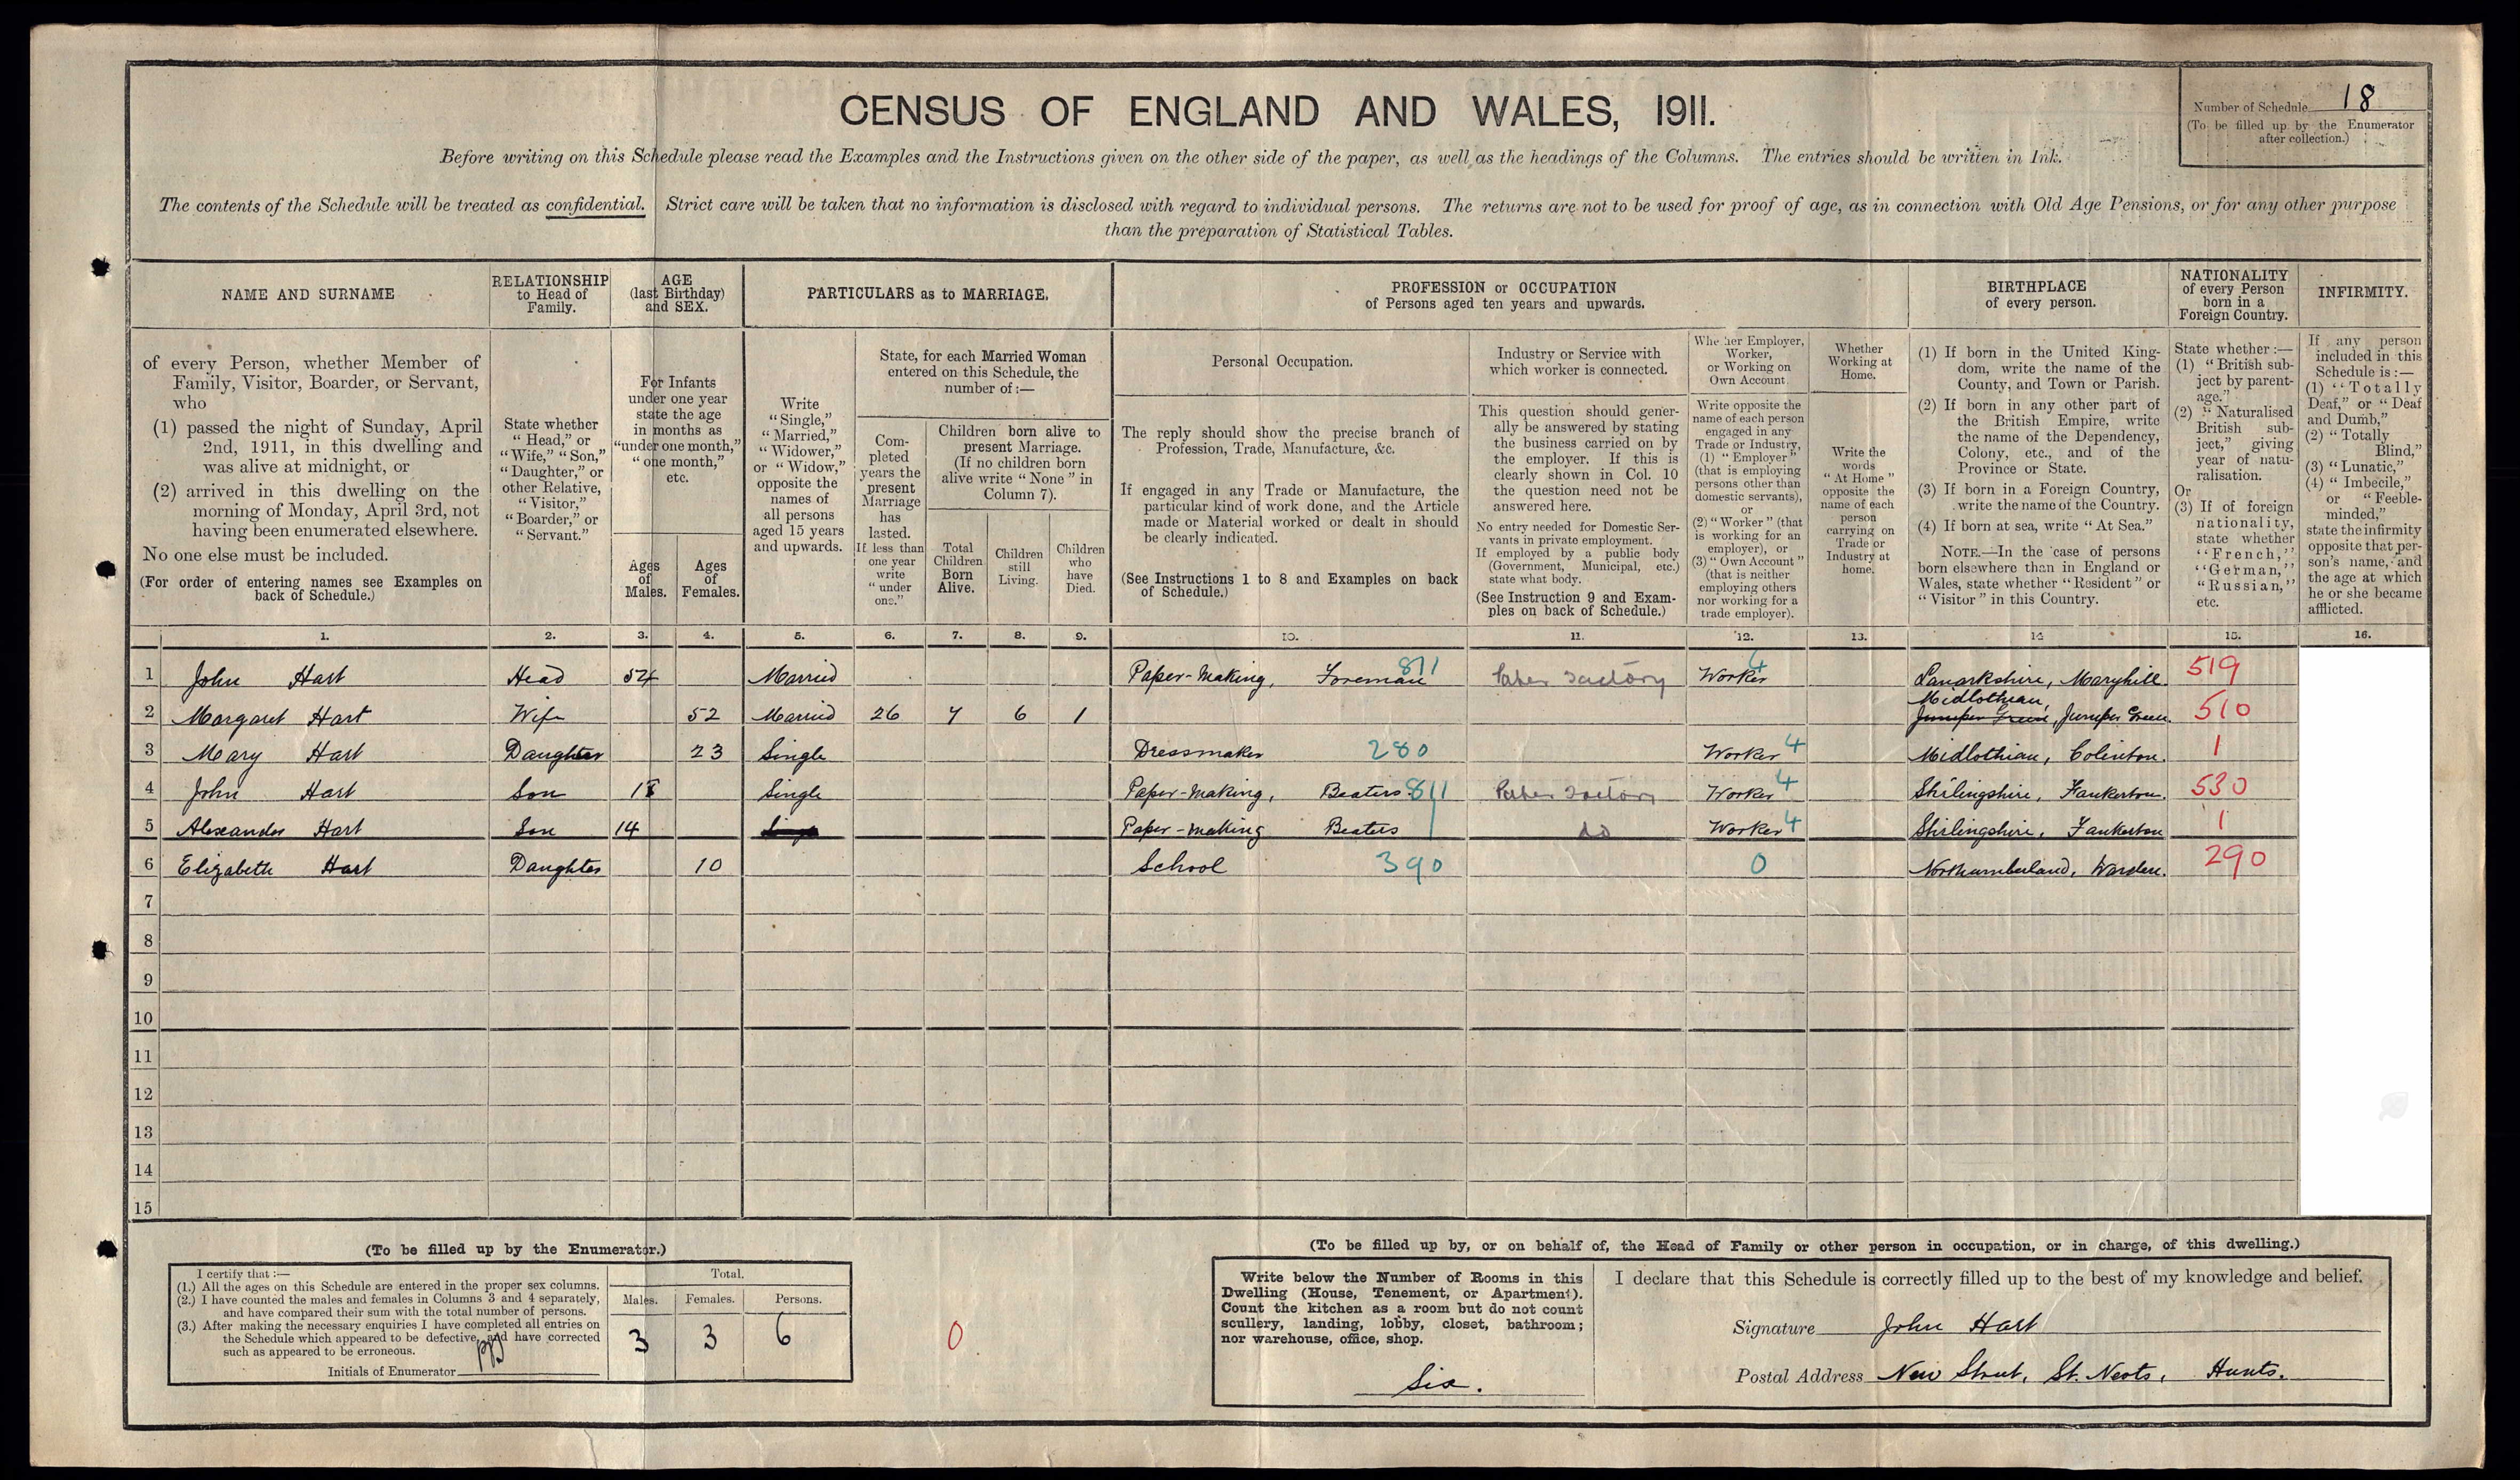 CENSUS OF ENGLAND AND WALES, 1911.
Number of Schedule 18
(To be filled up by the Enumerator
after collection.)
Before writing on this Schedule please read the Examples and the Instructions given on the other side of the paper, as well as the headings of the Columns. The entries should be written in Ink.
The contents of the Schedule will be treated as confidential. Strict care will be taken that no information is disclosed with regard to individual persons. The returns are not to be used for proof of age, as in connection with Old Age Pensions, or for any other purpose
than the preparation of Statistical Tables.
NAME AND SURNAME
of every Person, whether Member of
Family, Visitor, Boarder, or Servant,
who
(1) passed the night of Sunday, April
2nd, 1911, in this dwelling and
was alive at midnight, or
(2) arrived in this dwelling on the
morning of Monday, April 3rd, not
having been enumerated elsewhere.
No one else must be included.
(For order of entering names see Examples on
back of Schedule.)
RELATIONSHIP
to Head of
Family.
State whether
"Head," or
"Wife," "Son,"
"Daughter," or
other Relative,
"Visitor,"
"Boarder," or
"Servant."
AGE
(last Birthday)
and SEX.
For Infants
under one year
state the age
in months as
"under one month,"
"one month,"
etc.
Ages
of
Males.
Ages
of
Females.
PARTICULARS as to MARRIAGE.
Write
"Single,"
"Married,"
"Widower,"
or "Widow,"
opposite the
names of
all persons
aged 15 years
and upwards.
State, for each Married Woman
entered on this Schedule, the
number of:—
Com-
pleted
years the
present
Marriage
has
lasted.
If less than
one year
write
"under
one."
Children born alive to
present Marriage.
(If no children born
alive write "None" in
Column 7).
Total
Children
Born
Alive.
Children
still
Living.
Children
who
have
Died.
PROFESSION or OCCUPATION
of Persons aged ten years and upwards.
Personal Occupation.
The reply should show the precise branch of
Profession, Trade, Manufacture, &c.
If engaged in any Trade or Manufacture, the
particular kind of work done, and the Article
made or Material worked or dealt in should
be clearly indicated.
(See Instructions 1 to 8 and Examples on back
of Schedule.)
Industry or Service with
which worker is connected.
This question should gener-
ally be answered by stating
the business carried on by
the employer. If this is
clearly shown in Col. 10
the question need not be
answered here.
No entry needed for Domestic Ser-
vants in private employment.
If employed by a public body
(Government, Municipal, etc.)
state what body.
(See Instruction 9 and Exam-
ples on back of Schedule.)
Whether Employer,
Worker,
or Working on
Own Account.
Write opposite the
name of each person
engaged in any
Trade or Industry,
(1) "Employer"
(that is employing
persons other than
domestic servants),
or
(2) "Worker" (that
is working for an
employer), or
(3) "Own Account"
(that is neither
employing others
nor working for a
trade employer).
Whether
Working at
Home.
Write the
words
"At Home"
opposite the
name of each
person
carrying on
Trade or
Industry at
home.
BIRTHPLACE
of every person.
(1) If born in the United King-
dom, write the name of the
County, and Town or Parish.
(2) If born in any other part of
the British Empire, write
the name of the Dependency,
Colony, etc., and of the
Province or State.
(3) If born in a Foreign Country,
write the name of the Country.
(4) If born at sea, write "At Sea."
NOTE.—In the case of persons
born elsewhere than in England or
Wales, state whether "Resident" or
"Visitor" in this Country.
NATIONALITY
of every Person
born in a
Foreign Country.
State whether:—
(1) "British sub-
ject by parent-
age."
(2) "Naturalised
British sub-
ject," giving
year of natu-
ralisation.
Or
(3) If of foreign
nationality,
state whether
"French,"
"German,"
"Russian,"
etc.
INFIRMITY.
If any person
included in this
Schedule is:—
(1) "Totally
Deaf," or "Deaf
and Dumb,"
(2) "Totally
Blind,"
(3) "Lunatic,"
(4) "Imbecile,"
or "Feeble-
minded,"
state the infirmity
opposite that per-
son's name, and
the age at which
he or she became
afflicted.
1. 2. 3. 4. 5. 6. 7. 8. 9. 10. 11. 12. 13. 14 15. 16.
1 John Hart Head 54 Married Paper-Making, Foreman 811 Paper Factory Worker 4 Lanarkshire, Maryhill. 519
Midlothian,
2 Margaret Hart Wife 52 Married 26 7 6 1 Juniper Green, Juniper Green. 510
3 Mary Hart Daughter 23 Single Dressmaker 280 Worker 4 Midlothian, Colinton. 1
4 John Hart Son 18 Single Paper-Making, Beaters 811 Paper Factory Worker 4 Stirlingshire, Fankerton. 530
5 Alexander Hart Son 14 Single Paper-Making Beaters do Worker 4 Stirlingshire, Fankerton 1
6 Elizabeth Hart Daughter 10 School 390 0 Northumberland, Warden. 290
7
8
9
10
11
12
13
14
15
(To be filled up by the Enumerator.)
I certify that:—
(1.) All the ages on this Schedule are entered in the proper sex columns.
(2.) I have counted the males and females in Columns 3 and 4 separately,
and have compared their sum with the total number of persons.
(3.) After making the necessary enquiries I have completed all entries on
the Schedule which appeared to be defective, and have corrected
such as appeared to be erroneous.
Initials of Enumerator
Total.
Males. Females. Persons.
3 3 6
0
(To be filled up by, or on behalf of, the Head of Family or other person in occupation, or in charge, of this dwelling.)
Write below the Number of Rooms in this
Dwelling (House, Tenement, or Apartment).
Count the kitchen as a room but do not count
scullery, landing, lobby, closet, bathroom;
nor warehouse, office, shop.
Six.
I declare that this Schedule is correctly filled up to the best of my knowledge and belief.
Signature John Hart
Postal Address New Street, St. Neots, Hunts.